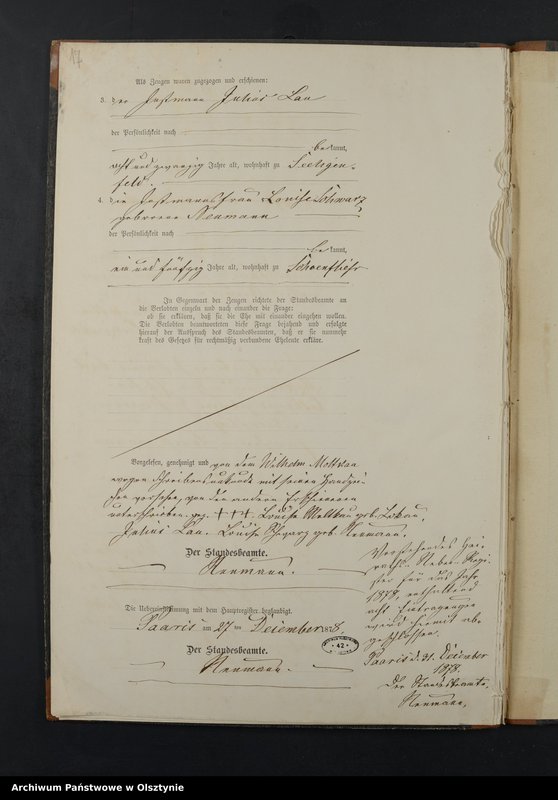 17
Als Zeugen waren zugezogen und erschienen:
3. der Instmann Julius Lau
der Persönlichkeit nach
bekannt,
acht und zwanzig Jahre alt, wohnhaft zu Seeligen-
feld.
4. die Instmannsfrau Louise Schwarz
geborene Neumann
der Persönlichkeit nach
bekannt,
ein und fünfzig Jahre alt, wohnhaft zu Schoenfließ
In Gegenwart der Zeugen richtete der Standesbeamte an
die Verlobten einzeln und nach einander die Frage:
ob sie erklären, daß sie die Ehe mit einander eingehen wollen.
Die Verlobten beantworteten diese Frage bejahend und erfolgte
hierauf der Ausspruch des Standesbeamten, daß er sie nunmehr
kraft des Gesetzes für rechtmäßig verbundene Eheleute erkläre.
Vorgelesen, genehmigt und von dem Wilhelm
wegen Schreibensunkunde mit seinem Handzei-
chen versehen, von den anderen Erschienenen
unterschrieben. gez. +++. Louise geb.
Julius Lau. Louise Schwarz geb. Neumann.
Der Standesbeamte.
Neumann.
Die Uebereinstimmung mit dem Hauptregister beglaubigt.
Paaris am 27 ten Dezember 1878.
Der Standesbeamte.
Neumann.
42
Vorstehendes Hei-
raths-Neben-Regi-
ster für das Jahr
1878, enthaltend
acht Eintragungen
wird hiermit ab-
geschlossen.
Paaris d. 31. Dezember
1878.
Der Standesbeamte,
Neumann,
Archiwum Państwowe w Olsztynie